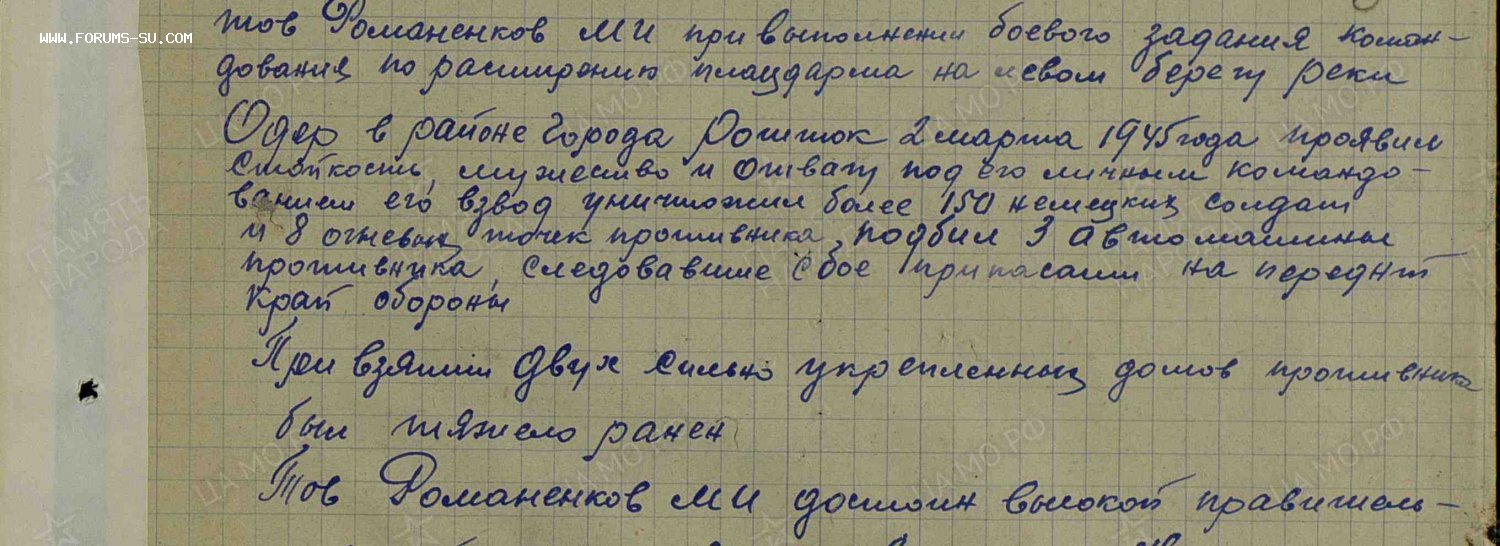 www.forums-su.com
тов Романенков МИ при выполнении боевого задания коман-
дования по расширению плацдарма на левом берегу реки
Одер в районе города 2 марта 1945 года проявил
стойкость, мужество и отвагу под его личным командо-
ванием его взвод уничтожил более 150 немецких солдат
и 8 огневых точек противника, подбил 3 автомашины
противника, следовавшие с бое припасами на передний
край обороны
При взятии двух сильно укрепленных домов противника
был тяжело ранен
Тов Романенков МИ достоин высокой правитель-
ПАМЯТЬ НАРОДА
ЦАМО.РФ